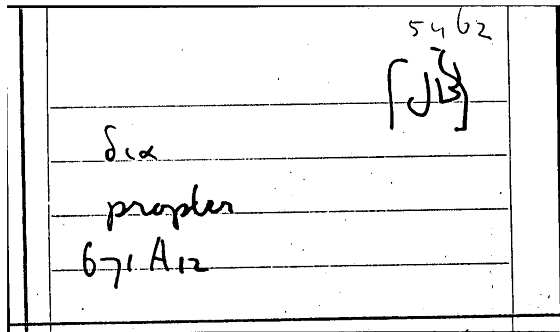 5462
[JB]
δια
propter
671 A12